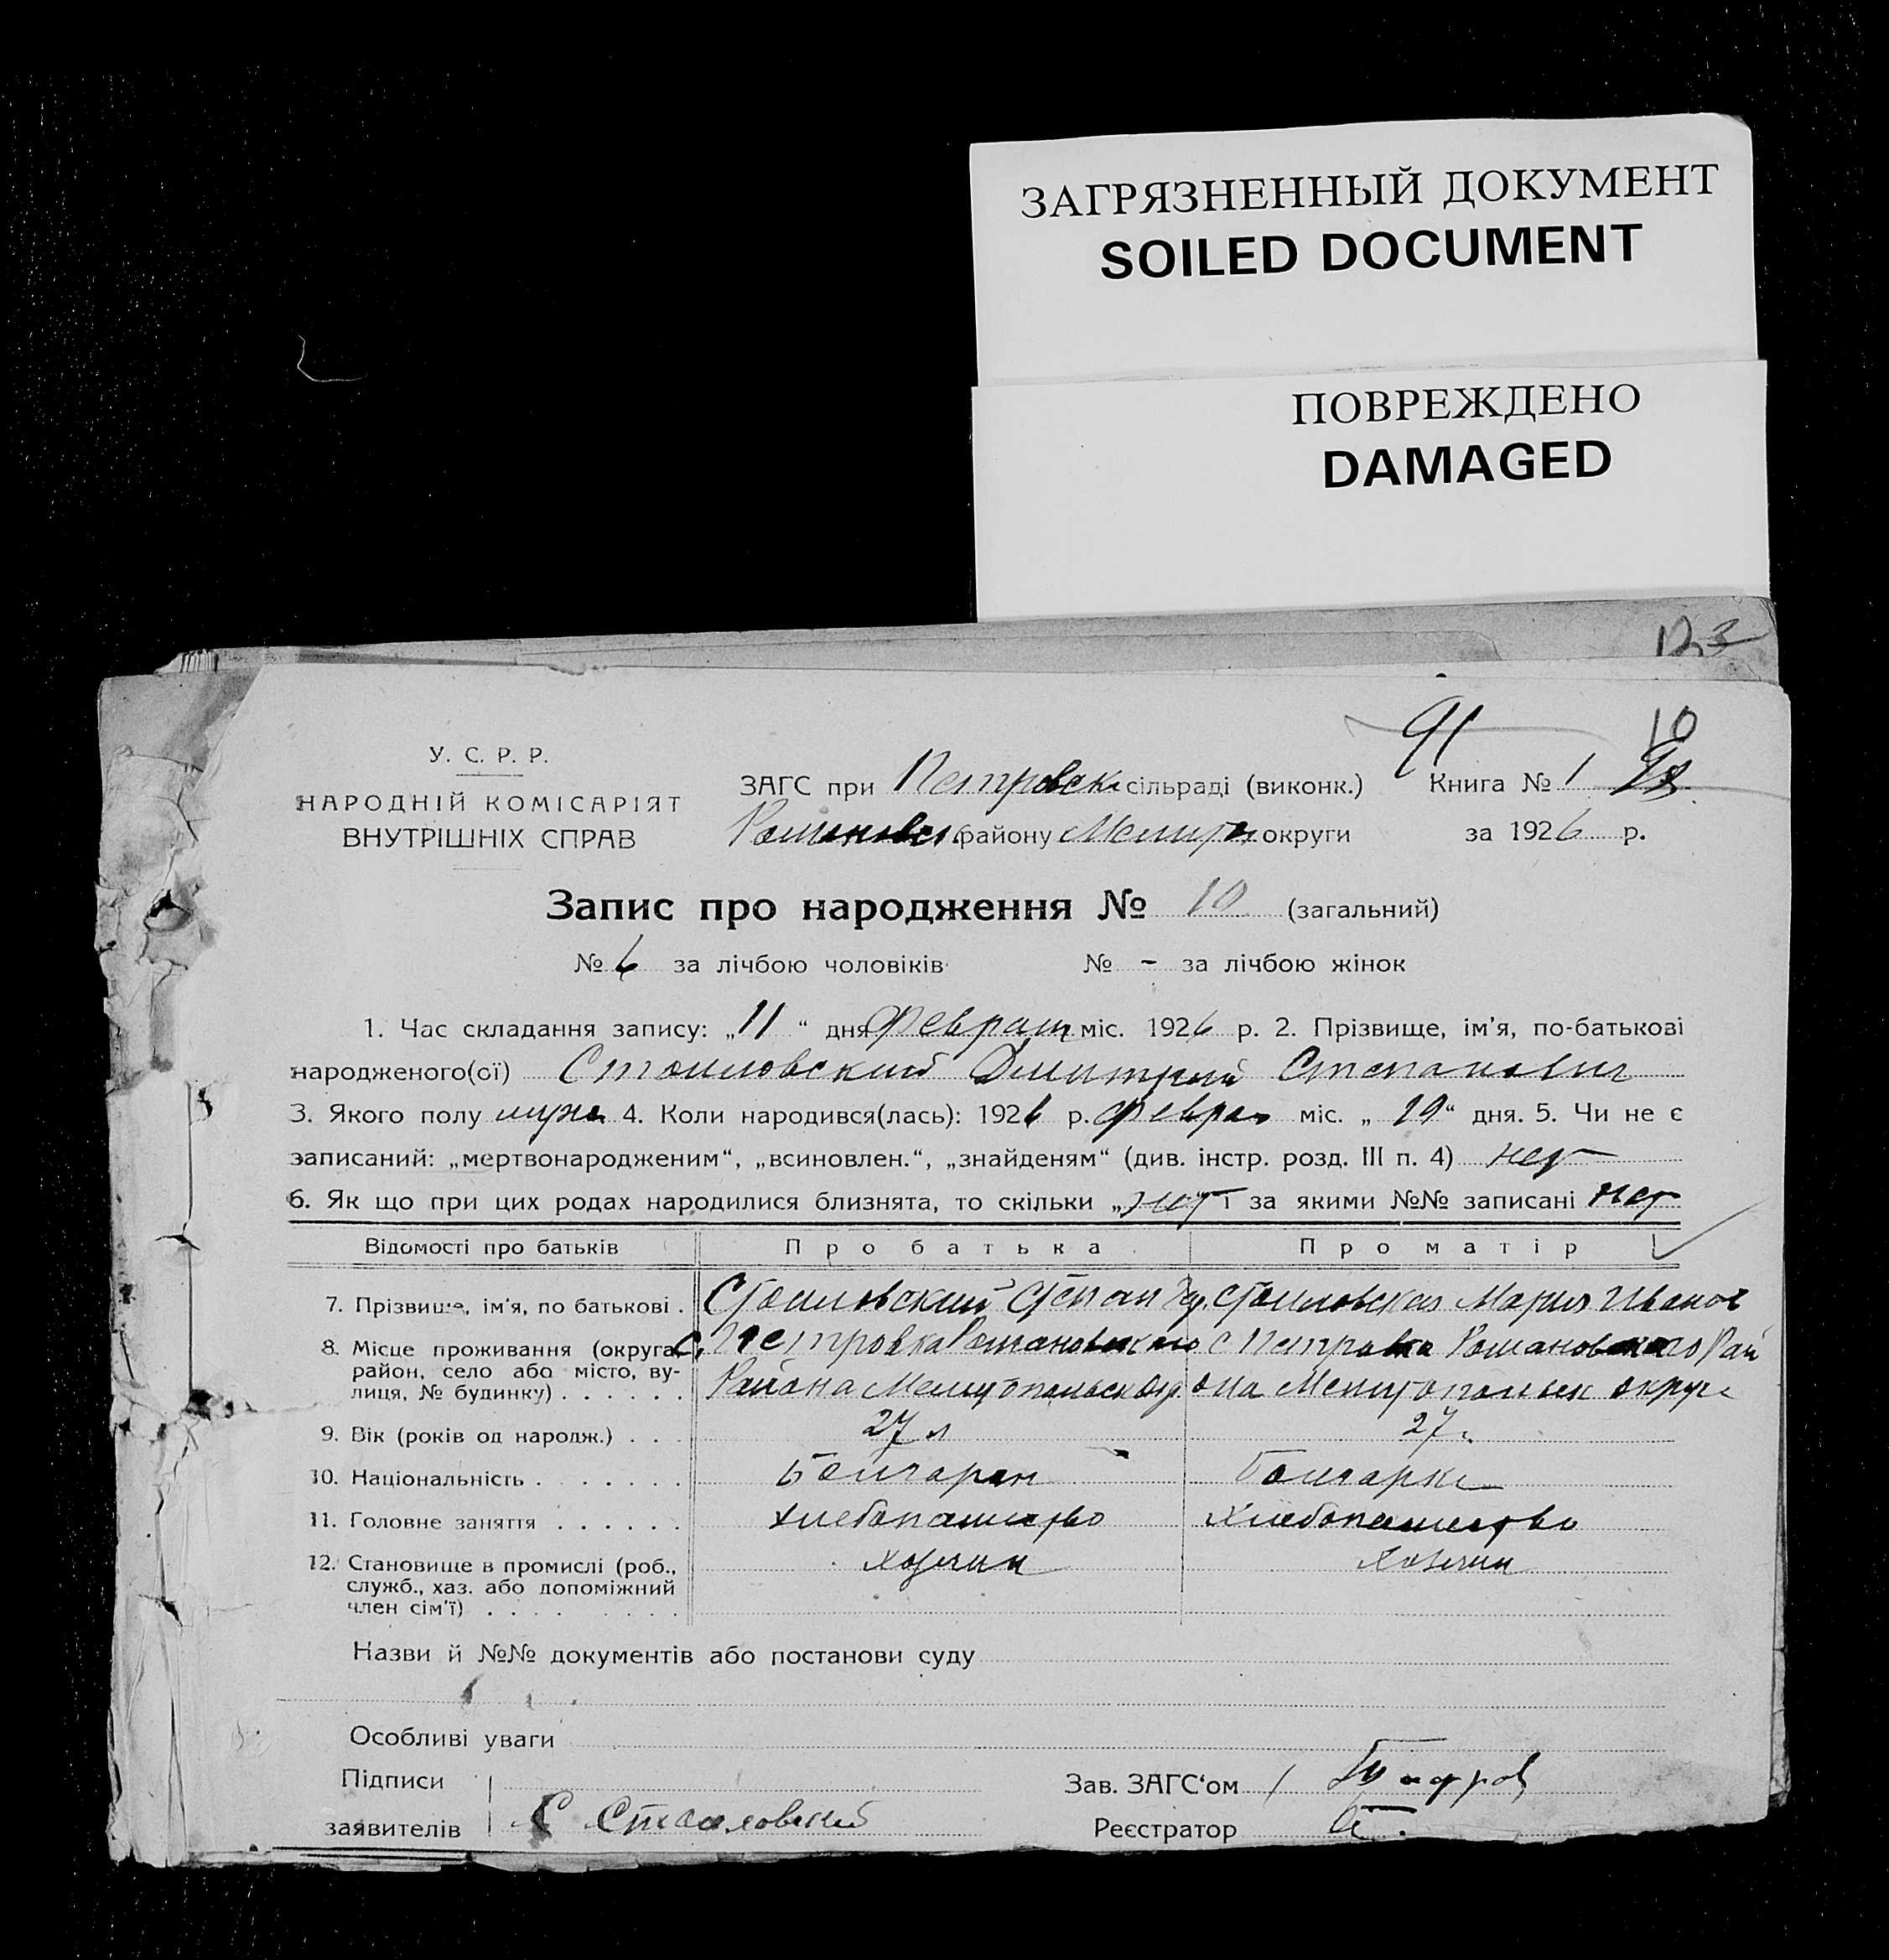 ЗАГРЯЗНЕННЫЙ ДОКУМЕНТ
SOILED DOCUMENT
ПОВРЕЖДЕНО
DAMAGED
123
91 10
У. С. Р. Р.
НАРОДНІЙ КОМІСАРІЯТ
ВНУТРІШНІХ СПРАВ
ЗАГС при Петровск сільраді (виконк.) Книга № 1
Романовск. району Мелит округи за 1926 р.
Запис про народження № 10 (загальний)
№ 6 за лічбою чоловіків № - за лічбою жінок
1. Час складання запису: „11“ дня Февраля міс. 1926 р. 2. Прізвище, ім'я, по-батькові
народженого(ої) Стоиловский Дмитрий Степанович
3. Якого полу муж. 4. Коли народився(лась): 1926 р. Феврал міс. „ “ дня. 5. Чи не є
записаний: „мертвонародженим“, „всиновлен.“, „знайденям“ (див. інстр. розд. III п. 4) нет
6. Як що при цих родах народилися близнята, то скільки „нет і за якими №№ записані нет
Відомості про батьків Про батька Про матір
7. Прізвище, ім'я, по батькові . Стоиловский Степан Стоиловская Мария Иванов
8. Місце проживання (округа, район, село або місто, вулиця, № будинку) . . . . . . с. Петровка Романовского с Петровка Романовского Рай
Района Мелитопольск она Мелитопольск округа
9. Вік (років од народж.) . . . 27 л 27.
10. Національність . . . . . . . Болгарин Болгарка
11. Головне заняття . . . . . . Хлебопашество Хлебопашество
12. Становище в промислі (роб., служб., хаз. або допоміжний член сім'ї) . . . . . . . . Хозяин Хозяин
Назви й №№ документів або постанови суду
Особливі уваги
Підписи
заявителів С Стоиловский
Зав. ЗАГС‘ом
Реєстратор